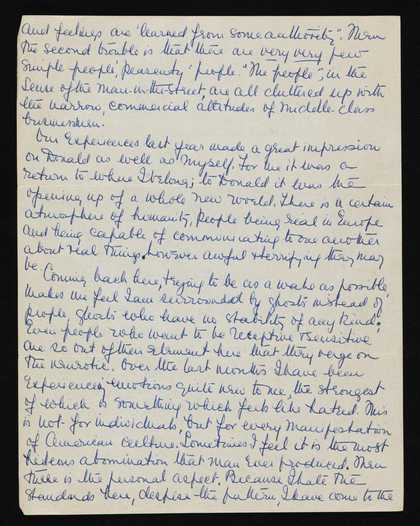 and feelings are "learned from some authority". Then
the second trouble is that there are very very few
simple people, Peasanty people. "The people", in the
sense of the man-in-the-street, are all cluttered up with
the narrow, commercial attitudes of middle-class
businessmen.
Our experiences last year made a great impression
on Donald as well as myself. For me it was a
return to where I belong; to Donald it was the
opening up of a whole new world. There is a certain
atmosphere of humanity, people being real in Europe
and being capable of communicating to one another
about real things, however awful & terrifying they may
be. Coming back here, trying to be as awake as possible
makes me feel I am surrounded by ghosts instead of
people, ghosts who have no stability of any kind.
Even people who want to be receptive & sensitive
are so out of their element here that they verge on
the neurotic. Over the last months I have been
experiencing emotions quite new to me, the strongest
of which is something which feels like hatred. This
is not for individuals, but for every manifestation
of American culture. Sometimes I feel it is the most
hideous abomination that man ever produced. Then
there is the personal aspect. Because I hate the
standards here, despise the pattern, I have come to the